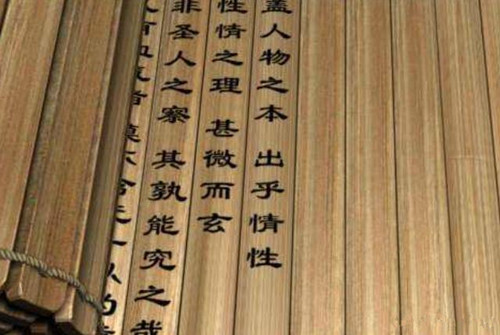 盖人物之本 出乎情性
性情之理 甚微而玄
非圣人之察 其孰能究之哉
有 者 莫不含 一以